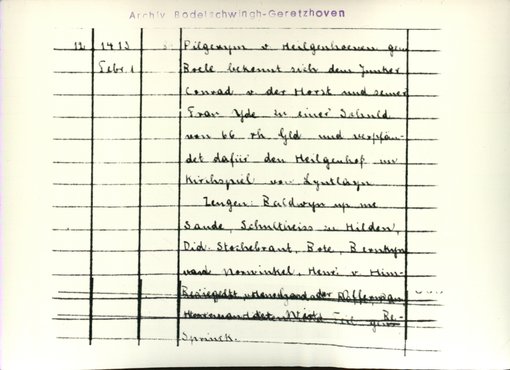 Archiv Bodelschwingh-Geretzhoven
12 1413 Pilgerym v. Heilgenhoeven gen
Febr. 1 Boele bekennt sich dem Junker
Conrad v. der Horst und seiner
Frau Yde zu einer Schuld
von 66 rh. Gld und verpfän-
det dafür den Heilgenhof im
Kirchspiel von Lyntlayn
Zeugen: Baldwyn up me
Sande, Schultheiss zu Hilden,
Did. Stochebrant, Bote, Bernkyn
Norwinkel, Henri v.
der
Be-
Sprinck.